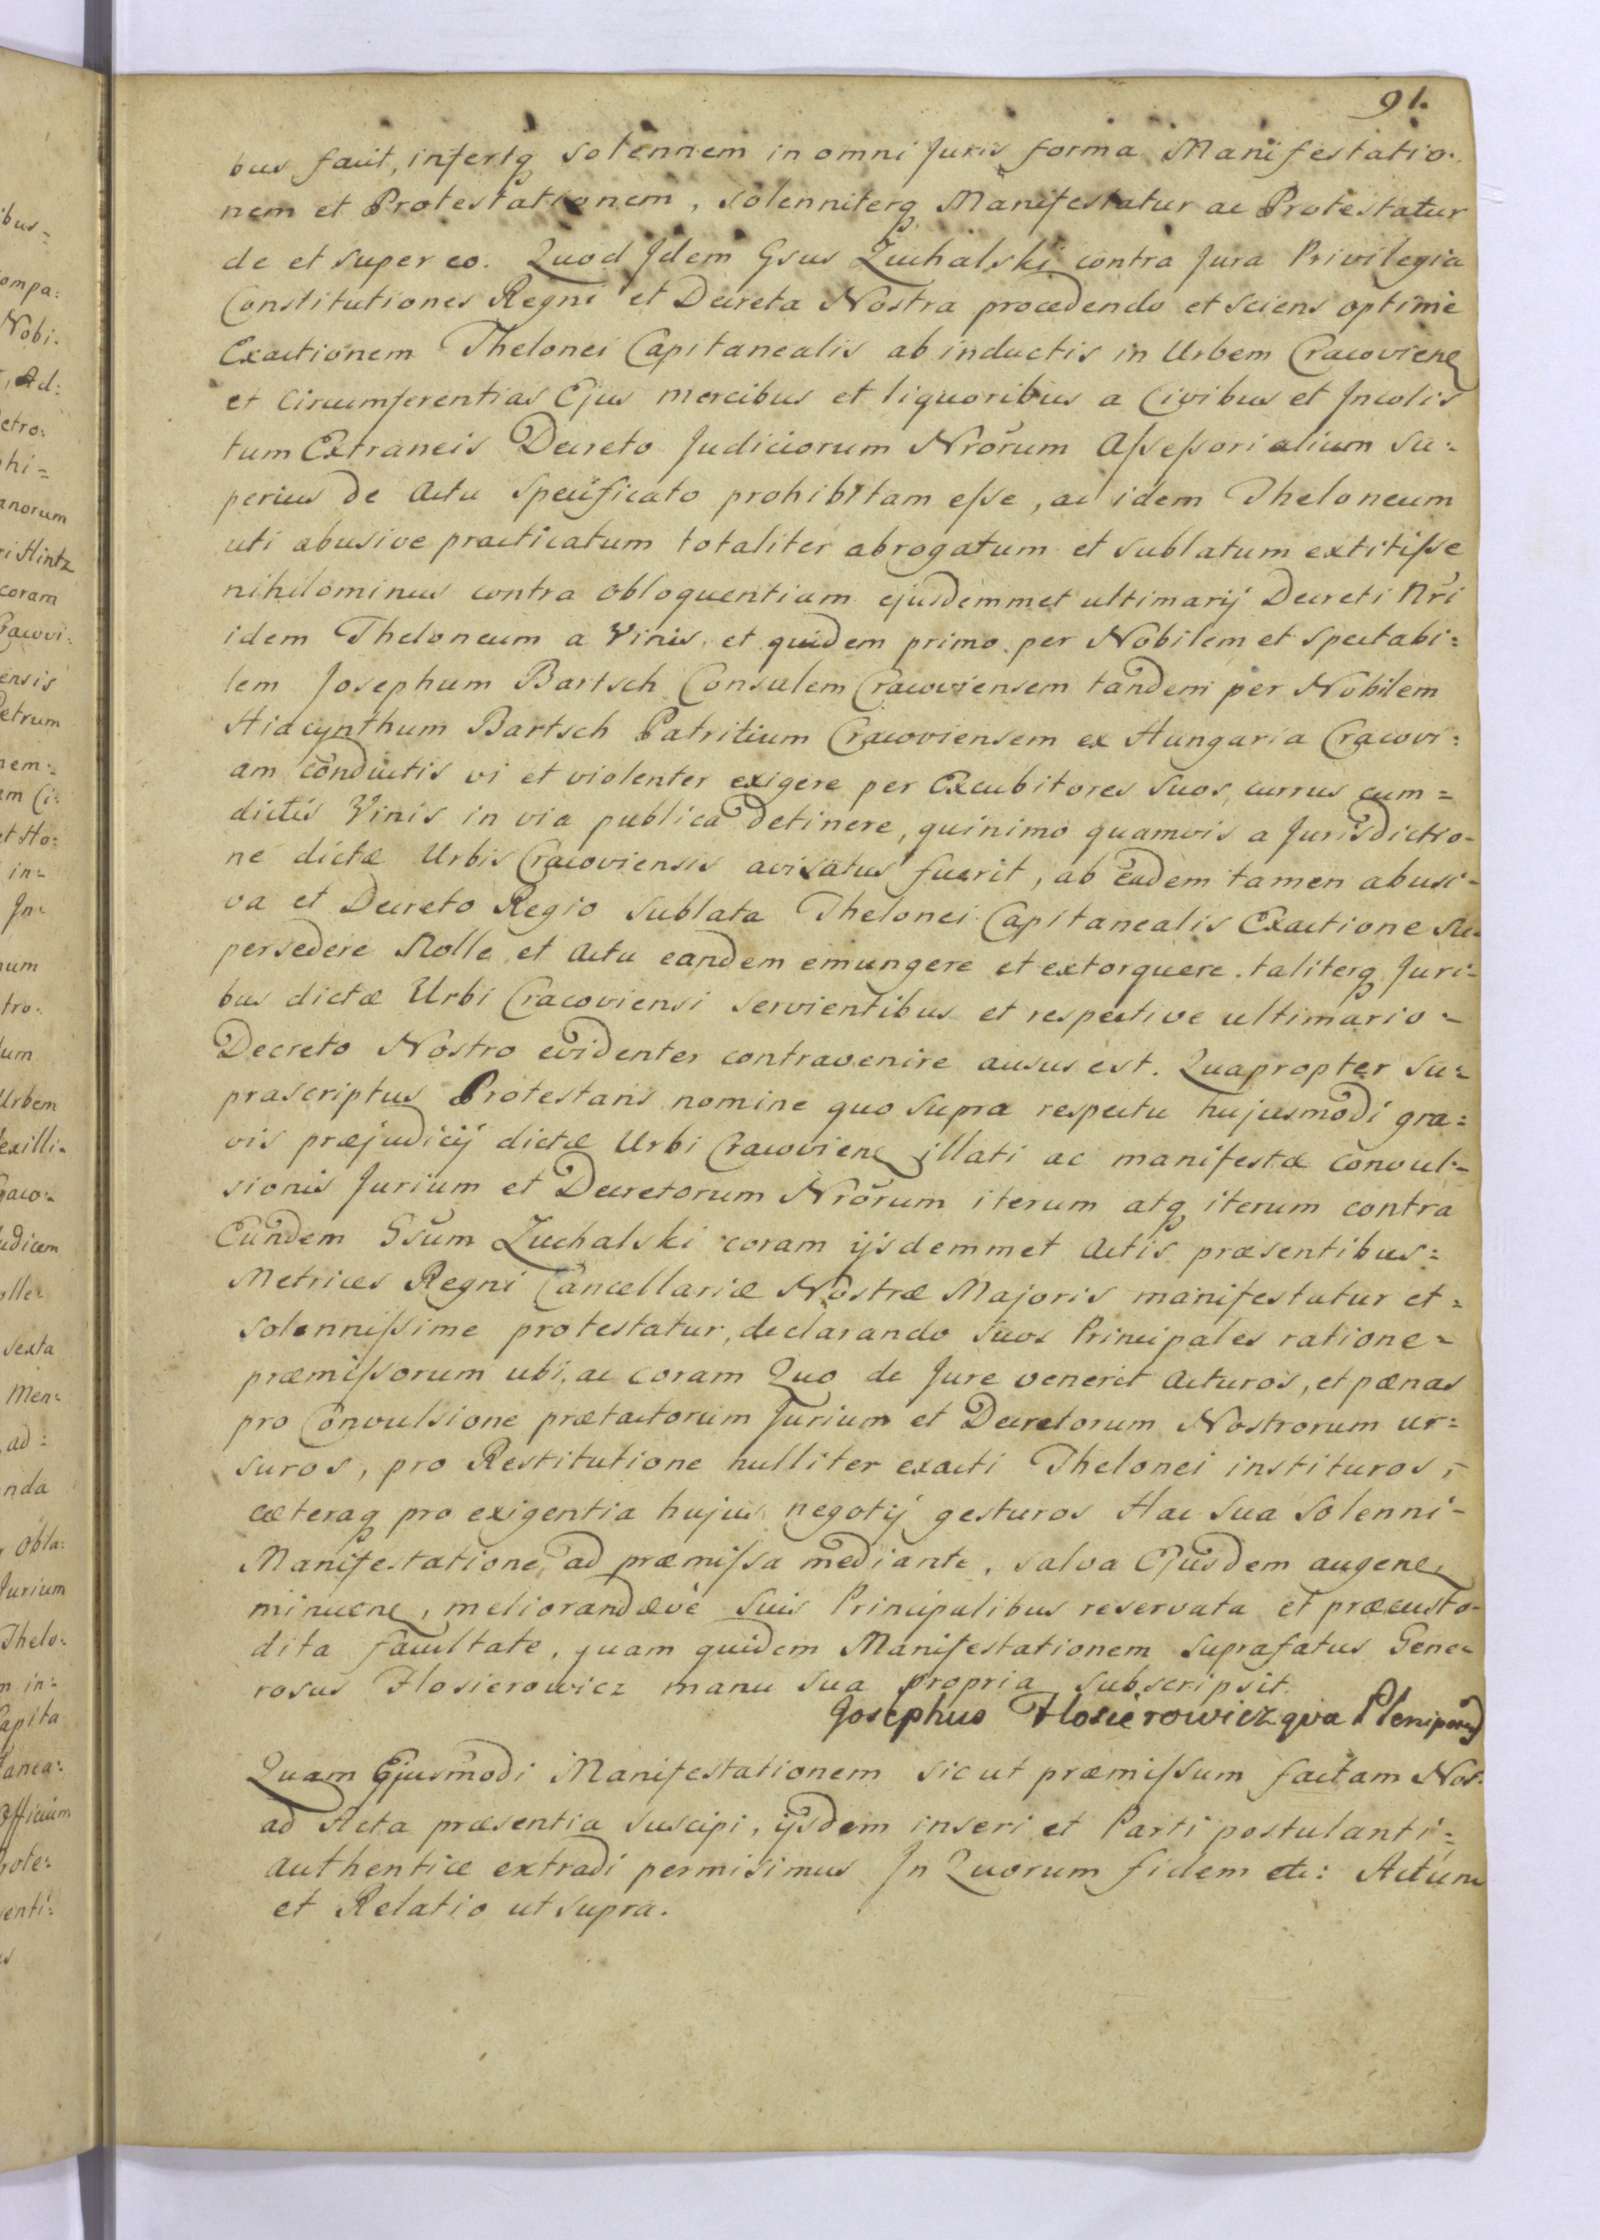 91.
bus facit, infertq solennem in omni Juris forma Manifestatio:
nem et Protestationem, solenniterq Manifestatur ac Protestatur
de et super eo. Quod Idem Gsus Zuchalski contra Jura Privilegia
Constitutiones Regni et Decreta Nostra procedendo et sciens optime
Exactionem Thelonei Capitanealis ab inductis in Urbem Cracovien
et Circumferentias Ejus mercibus et liquoribus a Civibus et Incolis
tum Extraneis Decreto Judiciorum Nrorum Assessorialium su:
perius de Actu specificato prohibitam esse, ac idem Theloneum
uti abusive practicatum totaliter abrogatum et sublatum extitisse
nihilominus contra obloquentiam ejusdemmet ultimarij Decreti Nri
idem Theloneum a Vinis, et quidem primo per Nobilem et Spectabi:
lem Josephum Bartsch Consulem Cracoviensem tandem per Nobilem
Hiacynthum Bartsch Patritium Cracoviensem ex Hungaria Cracovi:
am conductis vi et violenter exigere per Excubitores suos, currus cum=
dictis Vinis in via publica detinere, quinimo quamvis a Jurisdictio-
ne dictæ Urbis Cracoviensis avisatus fuerit, ab eadem tamen abusi-
va et Decreto Regio sublata Thelonei Capitanealis Exactione su-
persedere Nolle, et Actu eandem emungere et extorquere, taliterq Juri-
bus dictæ Urbi Cracoviensi servientibus et respective ultimario-
Decreto Nostro evidenter contravenire ausus est. Quapropter su-
prascriptus Protestans nomine quo supra respectu hujusmodi gra=
vis præjudicij dictæ Urbi Cracovien illati ac manifestæ convul-
sionis Jurium et Decretorum Nrorum iterum atq iterum contra
Eundem Gsum Zuchalski coram ijsdemmet Actis præsentibus=
Metrices Regni Cancellariæ Nostræ Majoris manifestatur et=
solennissime protestatur, declarando suos Principales ratione=
præmissorum ubi, ac coram Quo de Jure venerit Acturos, et pænas
pro Convulsione prætactorum Jurium et Decretorum Nostrorum ur=
suros, pro Restitutione nulliter exacti Thelonei instituros,-
cæteraq pro exigentia hujus negotij gesturos Hac sua solenni-
Manifestatione, ad præmissa mediante, salva Ejusdem augen
minuen, meliorandæve suis Principalibus reservata et præcusto-
dita facultate, quam quidem Manifestationem suprafatus Gene-
rosus Flosierowicz manu sua propria subscripsit.
Josephus Flosierowicz qva Plenipoten
Quam Ejusmodi Manifestationem sicut præmissum factam Nos-
ad Acta præsentia suscipi, ijsdem inseri et Parti postulanti-
authentice extradi permisimus In Quorum fidem etc: Actum
et Relatio ut supra.